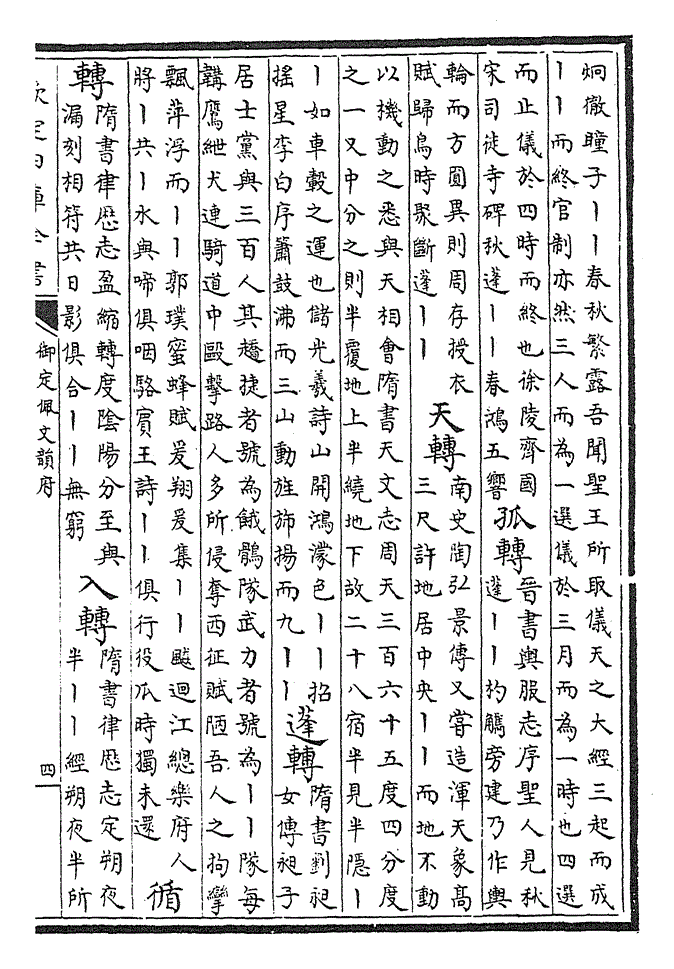 炯徹瞳子丨丨春秋繁露吾聞聖王所取儀天之大經三起而成
丨丨而終官制亦然三人而為一選儀於三月而為一時也四選
而止儀於四時而終也徐陵齊國
宋司徒寺碑秋蓬丨丨春鴻五響
孤轉
晉書輿服志序聖人見秋
蓬丨丨杓觿旁建乃作輿
輪而方圓異則周存授衣
賦歸鳥時聚斷蓬丨丨
天轉
南史陶弘景傳又嘗造渾天象高
三尺許地居中央丨丨而地不動
以機動之悉與天相會隋書天文志周天三百六十五度四分度
之一又中分之則半覆地上半繞地下故二十八宿半見半隱丨
丨如車轂之運也儲光羲詩山開鴻濛色丨丨招
搖星李白序簫鼓沸而三山動旌旆揚而九丨丨
蓬轉
隋書劉昶
女傳昶子
居士黨與三百人其趫捷者號為餓鶻隊武力者號為丨丨隊每
韝鷹紲犬連騎道中毆擊路人多所侵奪西征賦陋吾人之拘攣
飄萍浮而丨丨郭璞蜜蜂賦爰翔爰集丨丨飈迴江總樂府人
將丨共丨水與啼俱咽駱賓王詩丨丨俱行役瓜時獨未還
循
轉
隋書律歷志盈縮轉度陰陽分至與
漏刻相符共日影俱合丨丨無窮
入轉
隋書律歷志定朔夜
半丨丨經朔夜半所
欽定四庫全書
御定佩文韻府
四